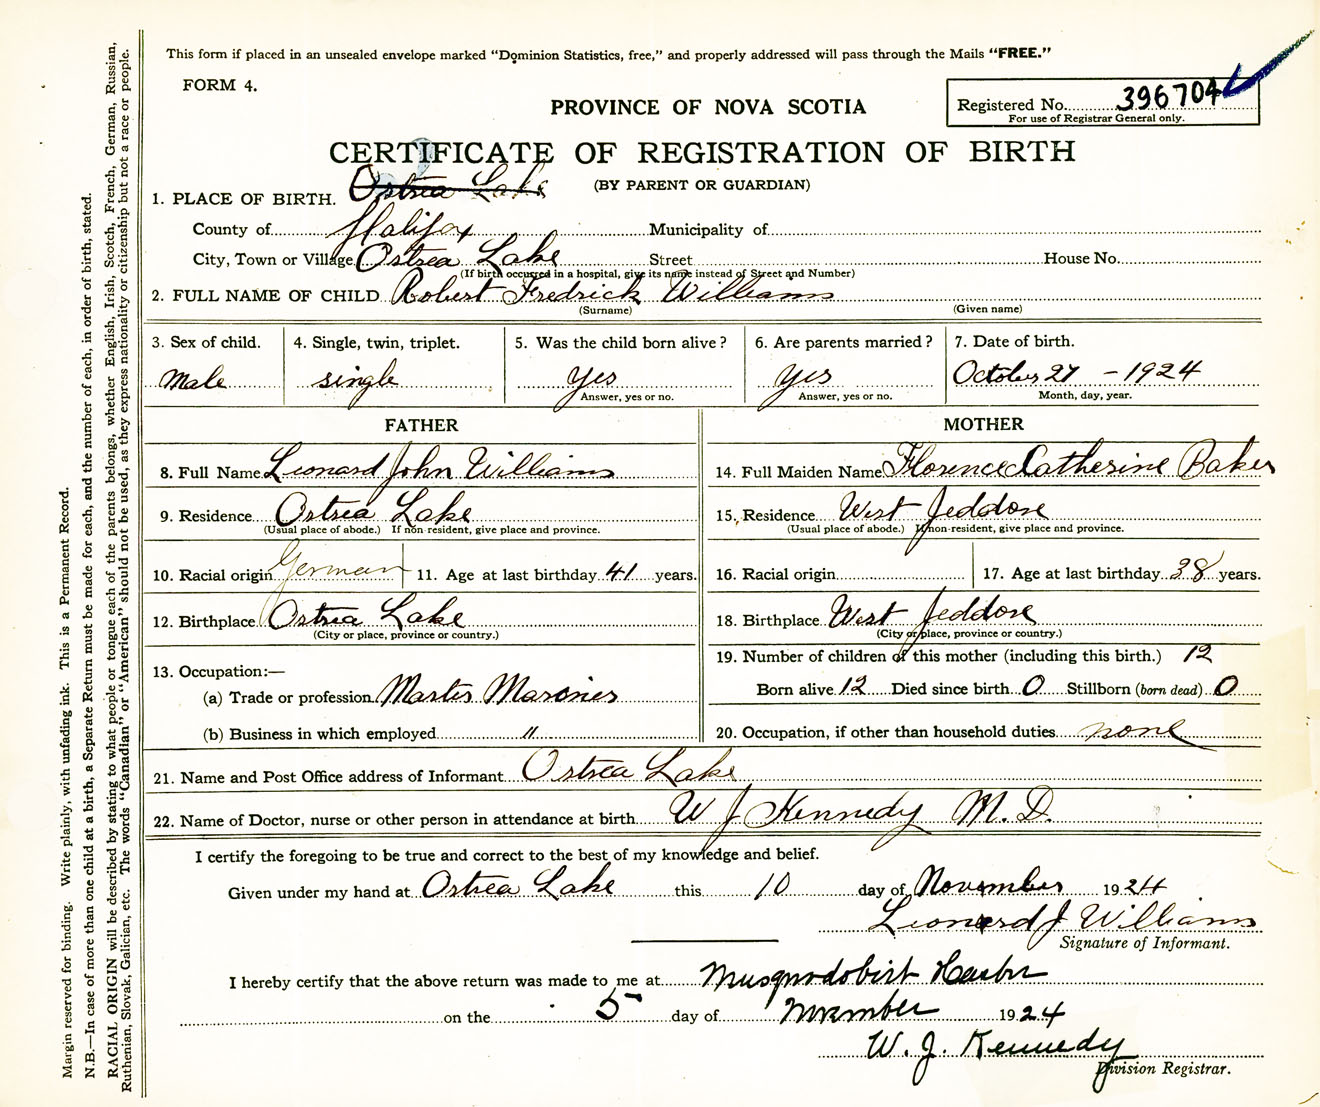 This form if placed in an unsealed envelope marked "Dominion Statistics, free," and properly addressed will pass through the Mails "FREE."
FORM 4.
PROVINCE OF NOVA SCOTIA
Registered No. 396704
For use of Registrar General only.
CERTIFICATE OF REGISTRATION OF BIRTH
(BY PARENT OR GUARDIAN)
1. PLACE OF BIRTH. Ostrea Lake
County of Halifax Municipality of
City, Town or Village Ostrea Lake Street House No.
(If birth occurred in a hospital, give its name instead of Street and Number)
2. FULL NAME OF CHILD Robert Fredrick Williams
(Surname) (Given name)
3. Sex of child. 4. Single, twin, triplet. 5. Was the child born alive? 6. Are parents married? 7. Date of birth.
Male single yes yes October 27 - 1924
Answer, yes or no. Answer, yes or no. Month, day, year.
FATHER
8. Full Name Leonard John Williams
9. Residence Ostrea Lake
(Usual place of abode.) If non-resident, give place and province.
10. Racial origin German 11. Age at last birthday 41 years.
12. Birthplace Ostrea Lake
(City or place, province or country.)
13. Occupation:—
(a) Trade or profession Master Mariner
(b) Business in which employed "
MOTHER
14. Full Maiden Name Florence Catherine Baker
15. Residence West Jeddore
(Usual place of abode.) If non-resident, give place and province.
16. Racial origin 17. Age at last birthday 38 years.
18. Birthplace West Jeddore
(City or place, province or country.)
19. Number of children of this mother (including this birth.) 12
Born alive 12 Died since birth 0 Stillborn (born dead) 0
20. Occupation, if other than household duties none
21. Name and Post Office address of Informant Ostrea Lake
22. Name of Doctor, nurse or other person in attendance at birth W J Kennedy M. D.
I certify the foregoing to be true and correct to the best of my knowledge and belief.
Given under my hand at Ostrea Lake this 10 day of November 1924
Leonard J Williams
Signature of Informant.
I hereby certify that the above return was made to me at Musquodoboit Harbor
on the 5 day of November 1924
W. J. Kennedy
Division Registrar.
Margin reserved for binding. Write plainly, with unfading ink. This is a Permanent Record.
N.B.—In case of more than one child at a birth, a Separate Return must be made for each, and the number of each, in order of birth, stated.
RACIAL ORIGIN will be described by stating to what people or tongue each of the parents belongs, whether English, Irish, Scotch, French, German, Russian,
Ruthenian, Slovak, Galician, etc. The words "Canadian" or "American" should not be used, as they express nationality or citizenship but not a race or people.